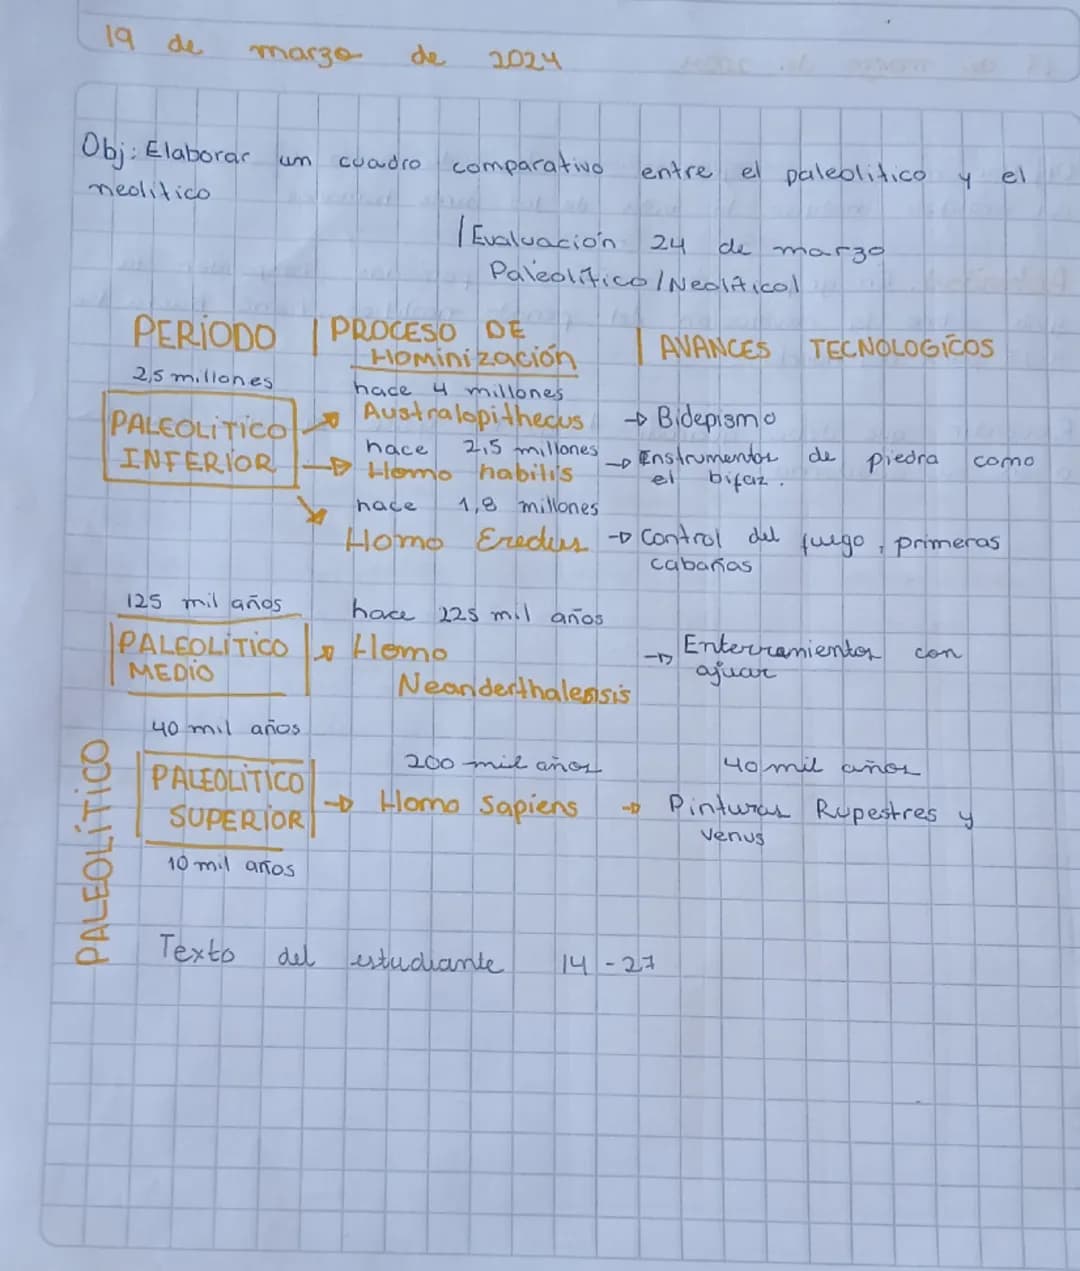 19 de marzo de 2024
Obj: Elaborar un cuadro comparativo entre el paleolitico y el
neolitico
| Evaluación 24 de marzo
Paleolítico / Neolítico |
PERÍODO | PROCESO DE | AVANCES TECNOLOGÍCOS
Hominización
2,5 millones
hace 4 millones
PALEOLÍTICO → Australopithecus → Bidepismo
INFERIOR
hace 2,5 millones
→ Homo habilis → Enstrumentos de piedra como
el bifaz.
hace 1,8 millones
Homo Eredus → Control del fuego, primeras
cabañas
125 mil años hace 225 mil años
PALEOLÍTICO → Homo → Enterramientos con
MEDÍO Neanderthalensis ajuar
40 mil años
200 mil años 40 mil años
PALEOLÍTICO
SUPERÍOR → Homo Sapiens → Pinturas Rupestres y
Venus
10 mil años
PALEOLÍTICO
Texto del estudiante 14 - 27